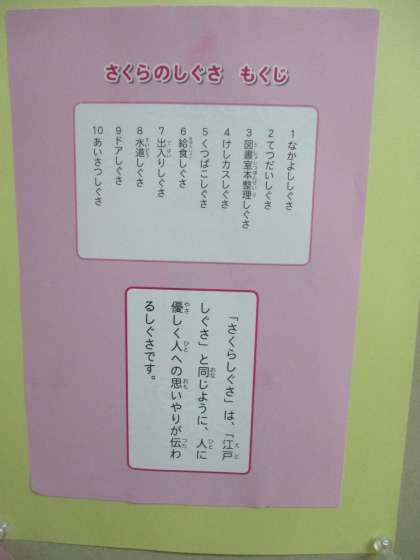 さくらのしぐさ　もくじ
1 なかよししぐさ
2 てつだいしぐさ
3 図書室本整理しぐさ
4 けしカスしぐさ
5 くつばこしぐさ
6 給食しぐさ
7 出入りしぐさ
8 水道しぐさ
9 ドアしぐさ
10 あいさつしぐさ
「さくらしぐさ」は、「江戸
しぐさ」と同じように、人に
優しく人への思いやりが伝わ
るしぐさです。